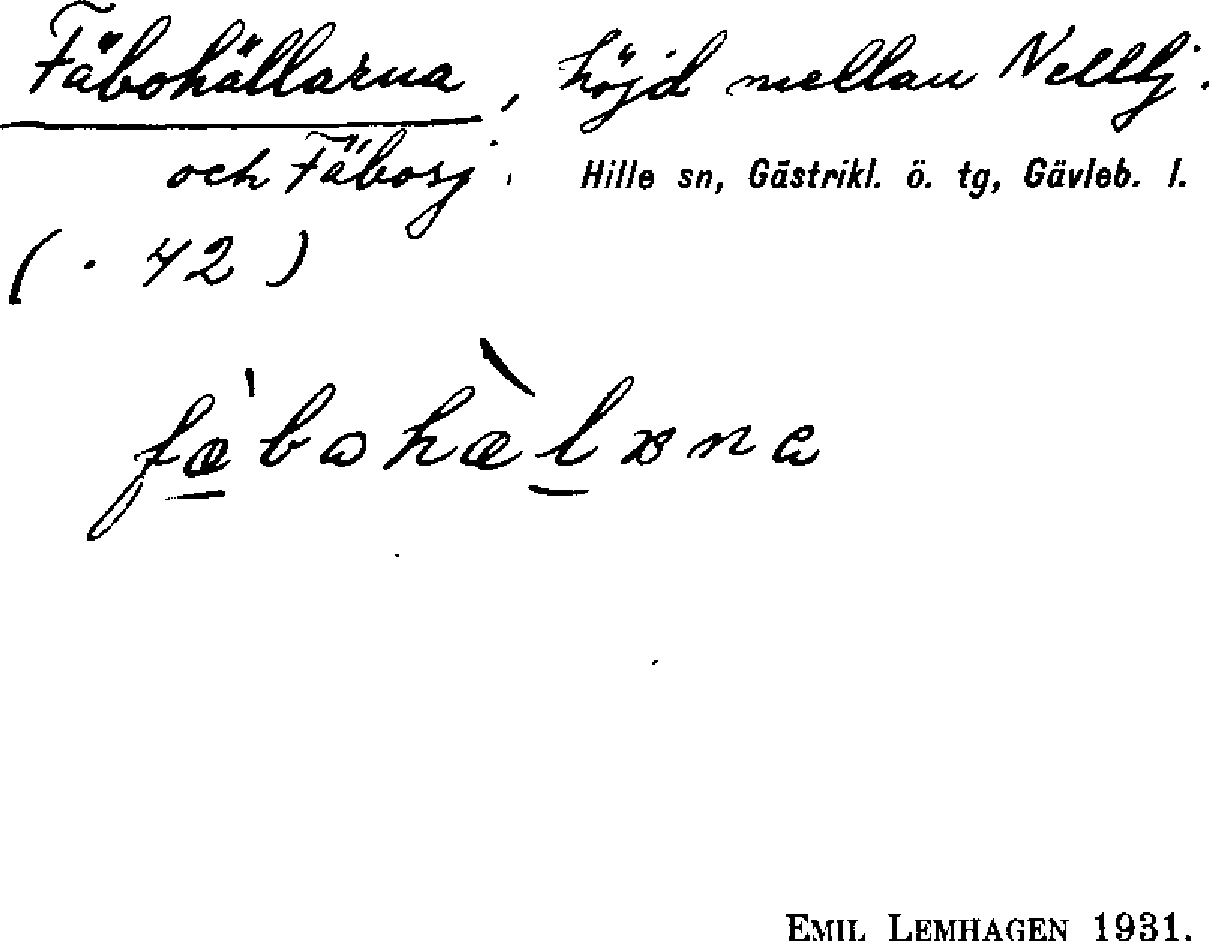 Fäbohällarna, höjd mellan Nellsj.
och Fäbosj. Hille sn, Gästrikl. ö. tg, Gävleb. l.
( . 42 )
EMIL LEMHAGEN 1931.